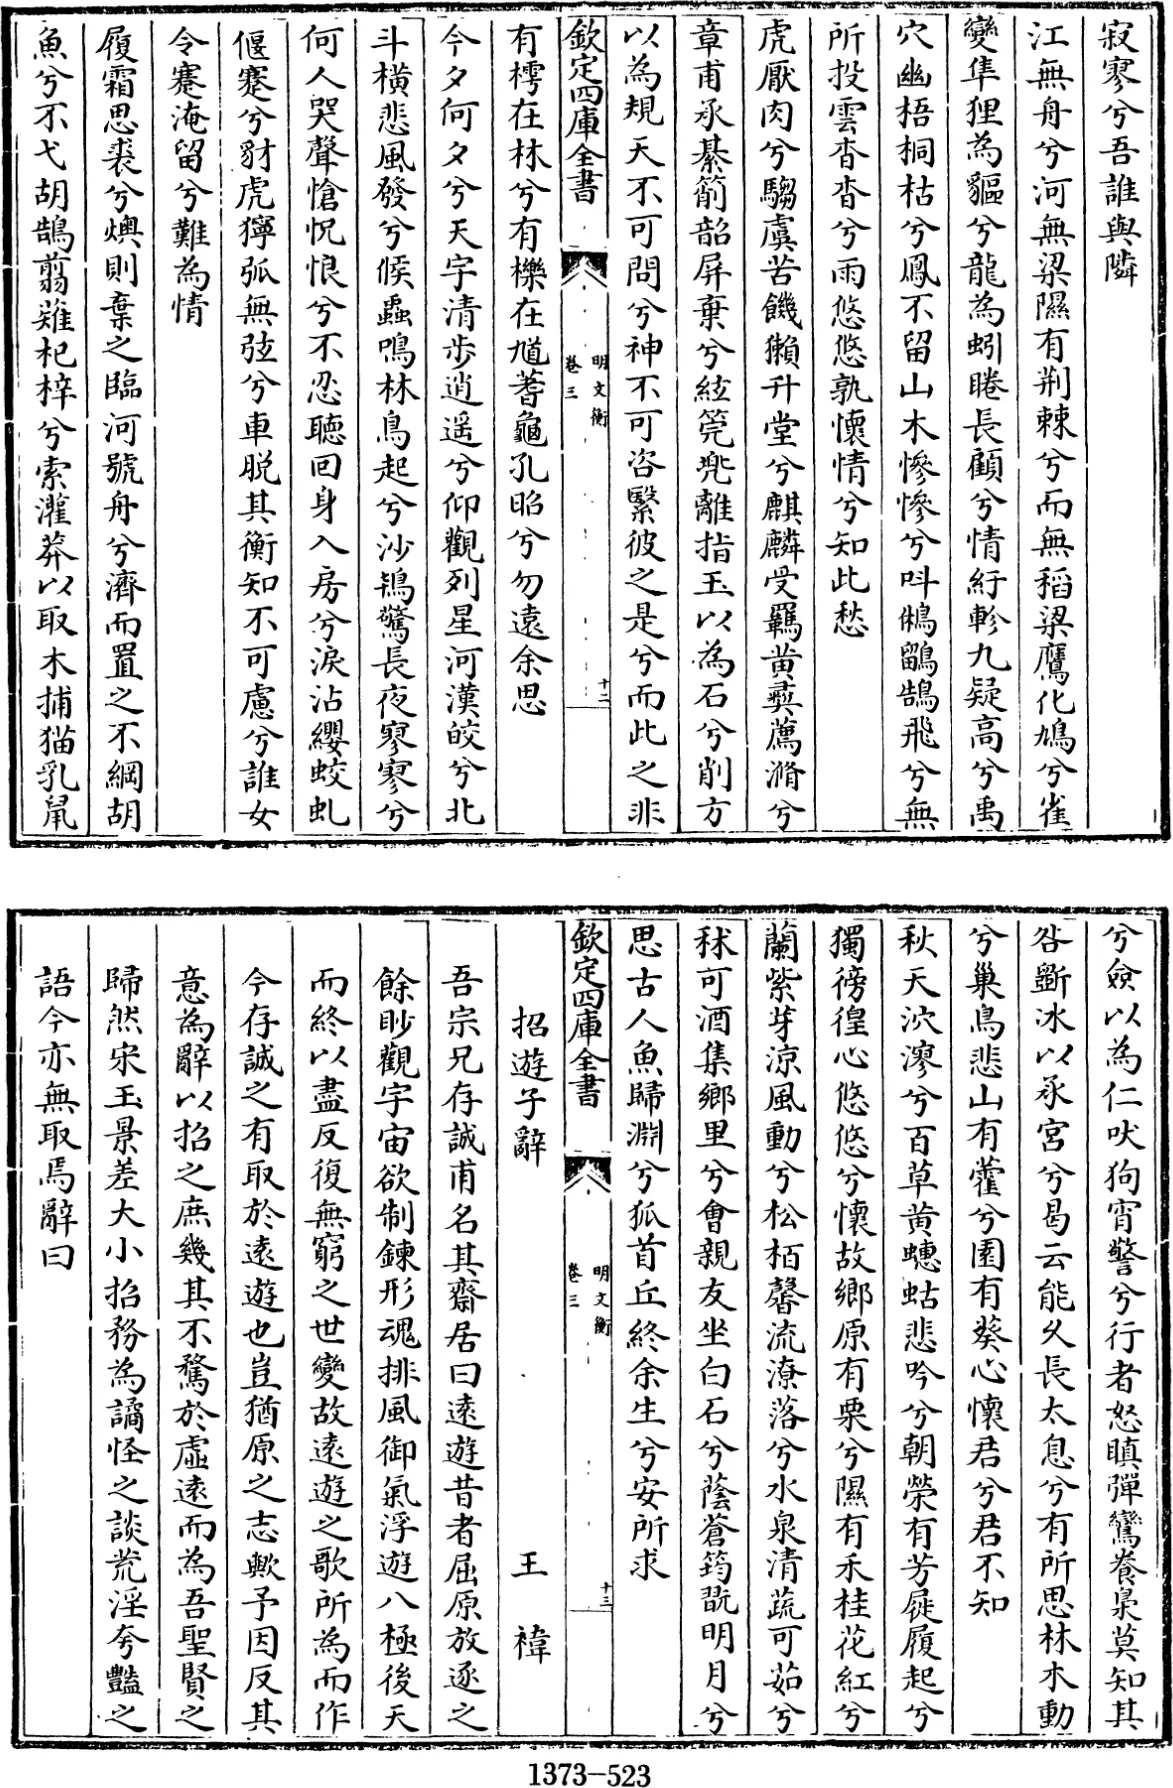 寂寥兮吾誰與隣
江無舟兮河無梁隰有荆棘兮而無稻梁鷹化鳩兮雀
變隼狸為貙兮龍為蚓睠長顧兮情紆軫九疑高兮禹
穴幽梧桐枯兮鳳不留山木慘慘兮呌鵂鶹鵠飛兮無
所投雲杳杳兮雨悠悠孰懷情兮知此愁
虎厭肉兮騶虞苦饑獺升堂兮麒麟受羈黄彛薦滫兮
章甫承綦箾韶屏棄兮絃筦兠離指玉以為石兮削方
以為規天不可問兮神不可咨繄彼之是兮而此之非
欽定四庫全書
明文衡
卷三
十二
有樗在林兮有櫟在馗蓍龜孔昭兮勿遠余思
今夕何夕兮天宇清歩逍遥兮仰觀列星河漢皎兮北
斗横悲風發兮候蟲鳴林鳥起兮沙鳺驚長夜寥寥兮
何人哭聲愴怳悢兮不忍聽回身入房兮淚沾纓蛟虬
偃蹇兮豺虎獰弧無弦兮車脱其衡知不可慮兮誰女
令蹇淹留兮難為情
履霜思裘兮燠則棄之臨河號舟兮濟而置之不綱胡
魚兮不弋胡鵠翦薙杞梓兮索灌莽以取木捕猫乳鼠
兮僉以為仁吠狗宵警兮行者怒瞋彈鸞養梟莫知其
咎斵冰以承宮兮曷云能久長太息兮有所思林木動
兮巢鳥悲山有藿兮園有葵心懷君兮君不知
秋天泬漻兮百草黄蟪蛄悲吟兮朝榮有芳屣履起兮
獨徬徨心悠悠兮懷故鄉原有栗兮隰有禾桂花紅兮
蘭紫芽涼風動兮松栢馨流潦落兮水泉清蔬可茹兮
秫可酒集鄉里兮會親友坐白石兮蔭蒼筠翫明月兮
思古人魚歸淵兮狐首丘終余生兮安所求
欽定四庫全書
明文衡
卷三
十三
招遊子辭 王褘
吾宗兄存誠甫名其齋居曰逺遊昔者屈原放逐之
餘眇觀宇宙欲制鍊形魂排風御氣浮遊八極後天
而終以盡反復無窮之世變故逺遊之歌所為而作
今存誠之有取於逺遊也豈猶原之志歟予因反其
意為辭以招之庶幾其不騖於虚逺而為吾聖賢之
歸然宋玉景差大小招務為譎怪之談荒淫夸豔之
語今亦無取焉辭曰
1373-523